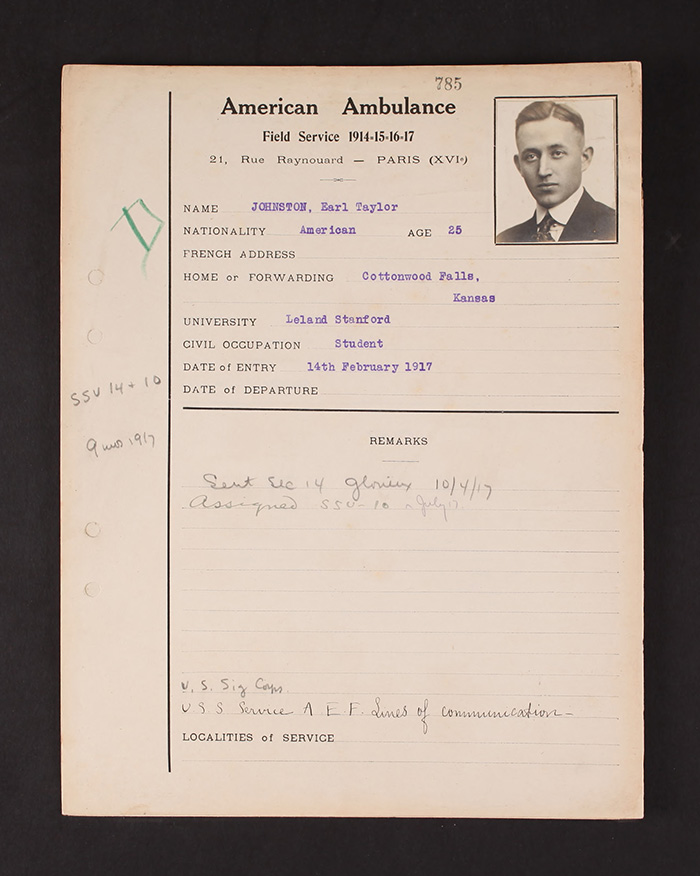 785
American Ambulance
Field Service 1914-15-16-17
21, Rue Raynouard — PARIS (XVIe)
NAME JOHNSTON, Earl Taylor
NATIONALITY American AGE 25
FRENCH ADDRESS
HOME or FORWARDING Cottonwood Falls,
Kansas
UNIVERSITY Leland Stanford
CIVIL OCCUPATION Student
DATE of ENTRY 14th February 1917
DATE of DEPARTURE
SSU 14 + 10
9 mos 1917
REMARKS
Sent Sec 14 Glorieux 10/4/17
Assigned SSU-10 - July 17.
U. S. Sig Corps.
U S S Service A E. F. Lines of communication -
LOCALITIES of SERVICE